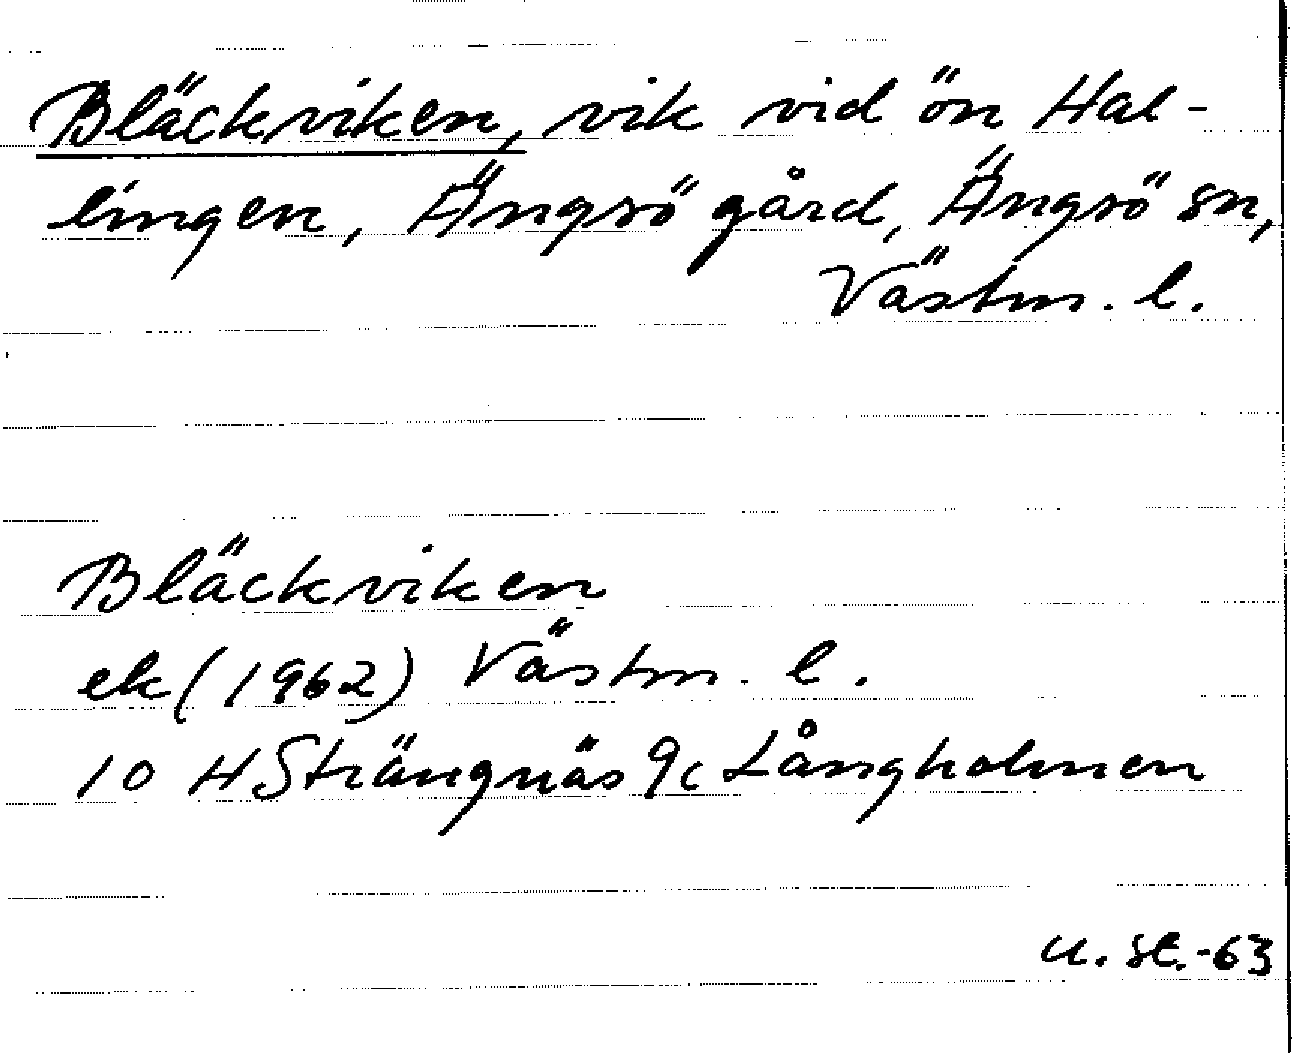 Bläckviken, vik vid ön Hal-
lingen, Ängsö gård, Ängsö sn,
Västm. l.
Bläckviken
ek (1962) Västm. l.
10 H Strängnäs 9c Långholmen
u. st.-63